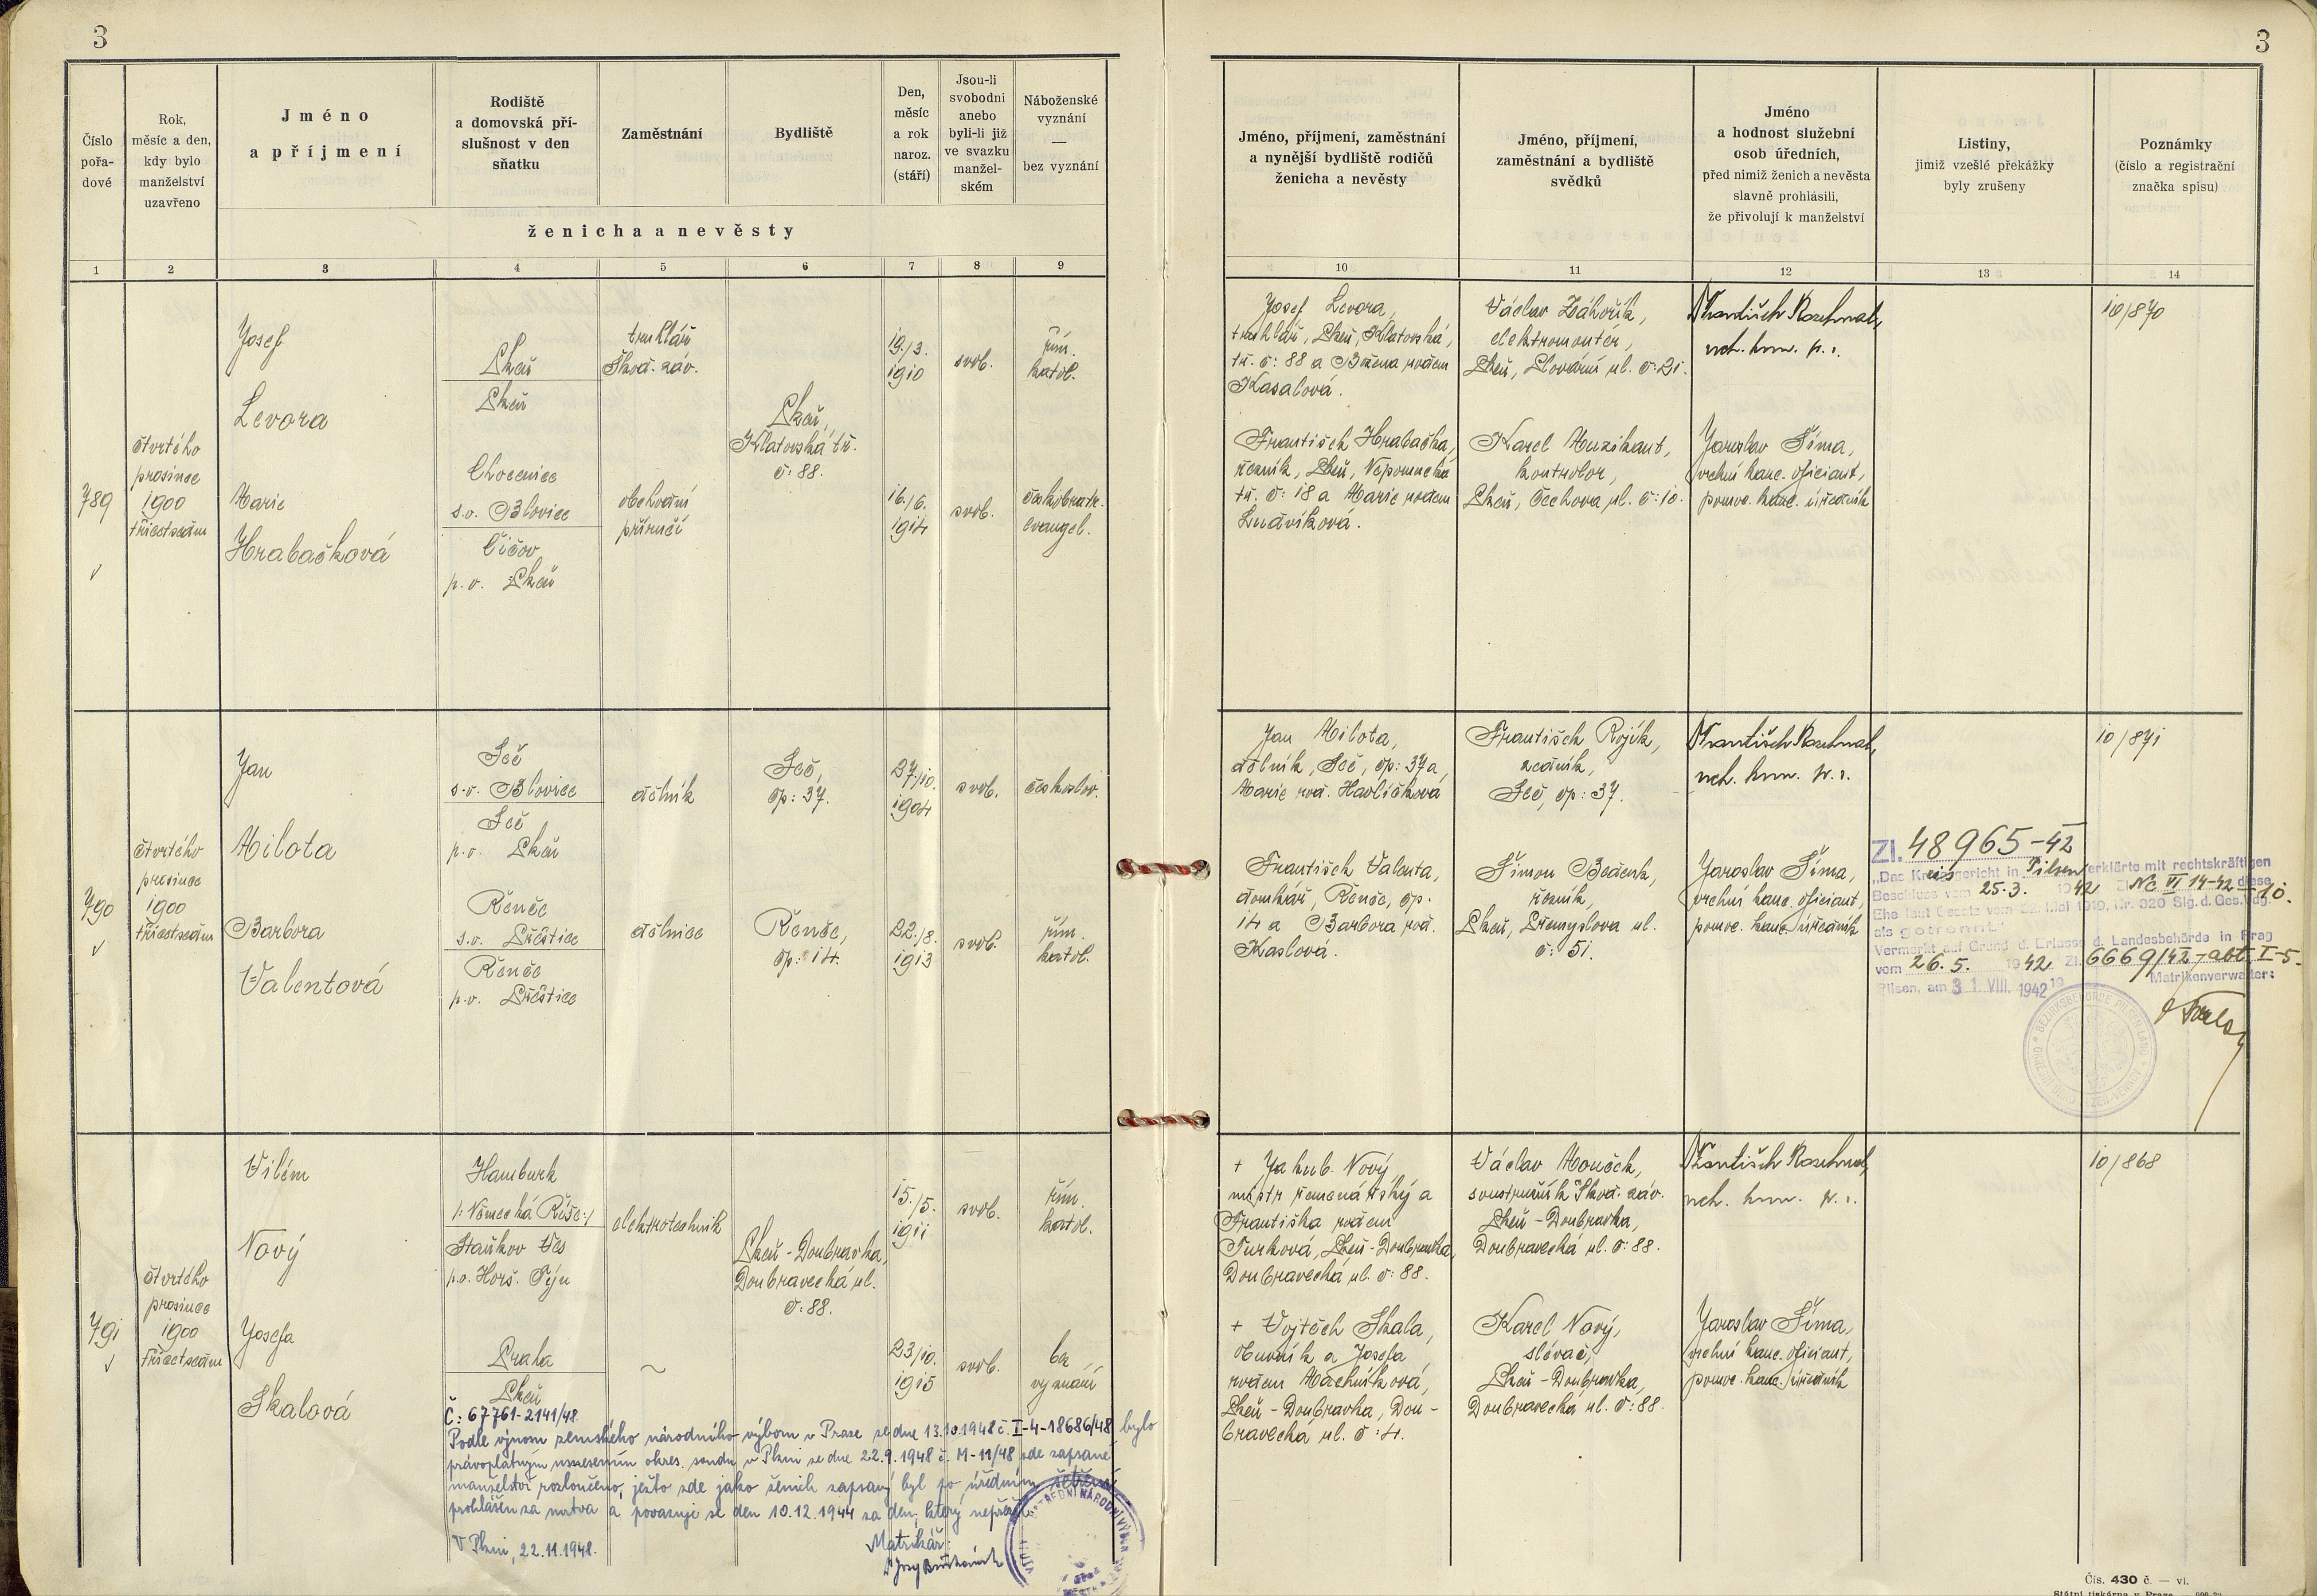 3
3
Číslo
pořa-
dové
Rok,
měsíc a den,
kdy bylo
manželství
uzavřeno
Jméno
a příjmení
Rodiště
a domovská pří-
slušnost v den
sňatku
Zaměstnání
Bydliště
Den,
měsíc
a rok
naroz.
(stáří)
Jsou-li
svobodni
anebo
byli-li již
ve svazku
manžel-
ském
Náboženské
vyznání
—
bez vyznání
ženicha a nevěsty
Jméno, příjmení, zaměstnání
a nynější bydliště rodičů
ženicha a nevěsty
Jméno, příjmení,
zaměstnání a bydliště
svědků
Jméno
a hodnost služební
osob úředních,
před nimiž ženich a nevěsta
slavně prohlásili,
že přivolují k manželství
Listiny,
jimiž vzešlé překážky
byly zrušeny
Poznámky
(číslo a registrační
značka spisu)
1
2
3
4
5
6
7
8
9
10
11
12
13
14
789
čtvrtého
prosince
1900
třicetsedm
Josef
Levora
Plzeň
Plzeň
truhlář
Škod. záv.
Plzeň,
Klatovská tř.
č: 88.
19./3.
1910
svob.
řím.
katol.
Marie
Hrabačková
Chocenice
s.o. Blovice
Čičov
p.o. Plzeň
obchodní
příručí
16./6.
1914
svob.
českobratr.
evangel.
Josef Levora,
truhlář, Plzeň, Klatovská
tř. č: 88 a Božena rodem
Kasalová.
František Hrabačka,
řezník, Plzeň, Nepomucká
tř. č: 18 a Marie rodem
Ludvíková.
Václav Záhořík,
elektromontér,
Plzeň, Slovární ul. č: 21.
Karel Muzikant,
kontrolor,
Plzeň, Čechova ul. č: 10.
František
Jaroslav Šíma,
vrchní kanc. oficiant,
pomoc. kanc. úředník
10/870
790
čtvrtého
prosince
1900
třicetsedm
Jan
Milota
Seč
s.o. Blovice
Seč
p.o. Plzeň
dělník
Seč,
čp: 37.
27./10.
1904
svob.
českoslov.
Barbora
Valentová
Řenče
s.o. Přeštice
Řenče
p.o. Přeštice
dělnice
Řenče,
čp: 14.
22./8.
1913
svob.
řím.
katol.
Jan Milota,
dělník, Seč, čp: 37 a
Marie rod. Havlíčková
František Valenta,
domkář, Řenče, čp.
14 a Barbora rod.
Kaslová.
František Rojík,
zedník,
Seč, čp: 37.
Šimon Beďenk,
řezník,
Plzeň, Přemyslova ul.
č: 51.
František
Jaroslav Šíma,
vrchní kanc. oficiant,
pomoc. kanc. úředník
10/871
Zl. 48965-42
"Das Kreisgericht in Pilsen erklärte mit rechtskräftigen
Beschluss vom 25.3. 1942 Zl. Nc VI 14-42-10. diese
Ehe laut Gesetz vom 22. Mai 1919, Nr. 320 Slg. d. Ges. u. Vdg.
als getrennt"
Vermerkt auf Grund d. Erlasse d. Landesbehörde in Prag
vom 26.5. 1942 Zl. 6669/42-abt. I-5.
Pilsen, am 31. VIII. 1942 Matrikenverwalter:
BEZIRKSBEHÖRDE PILSEN-LAND
791
čtvrtého
prosince
1900
třicetsedm
Vilém
Nový
Hamburk
/: Německá Říše :/
Staňkov Ves
p.o. Horš. Týn
elektrotechnik
Plzeň - Doubravka,
Doubravecká ul.
č: 88.
15./5.
1911
svob.
řím.
katol.
Josefa
Skalová
Praha
Plzeň
~
23/10.
1915
svob.
bez
vyznání
+ Jakub Nový
mistr řemenářský a
Františka rodem
Turková, Plzeň - Doubravka,
Doubravecká ul. č: 88.
+ Vojtěch Skala,
obuvník a Josefa
rodem Machníková,
Plzeň - Doubravka, Dou-
bravecká ul. č: 4.
Václav Mouček,
soustružník Škod. záv.
Plzeň - Doubravka,
Doubravecká ul. č: 88.
Karel Nový,
slévač,
Plzeň - Doubravka,
Doubravecká ul. č: 88.
František
Jaroslav Šíma,
vrchní kanc. oficiant,
pomoc. kanc. úředník
10/868
Č: 67761-2141/48.
Podle výnosu zemského národního výboru v Praze ze dne 13.10.1948 č. I-4-18686/48 bylo
právoplatným usnesením okres. soudu v Plzni ze dne 22.9.1948 č. M-11/48 zde zapsané
manželství rozloučeno, ježto zde jako ženich zapsaný byl po úředním šetření
prohlášen za mrtva a považuje se den 10.12.1944 za den, který nepřežil.
V Plzni, 22.11.1948.
Matrikář:
Čís. 430 č. — vl.
Státní tiskárna v Praze.